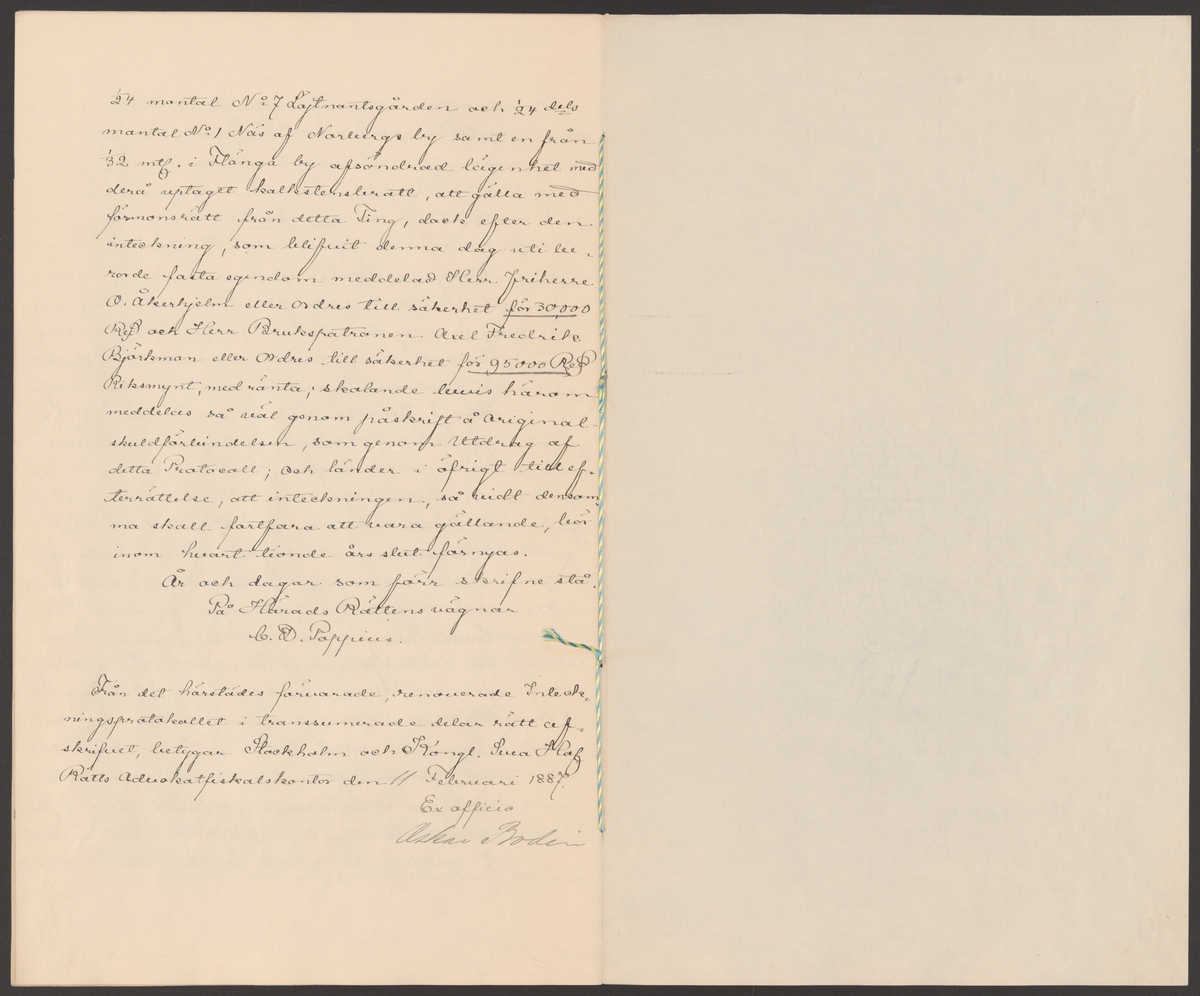 1/24 mantal No 7 Löjtnantsgården och 1/24 dels
mantal No 1 Näs af Norbergs by samt en från
1/32 mtl. i Flänga by afsöndrad lägenhet med
derå uptaget kalkstensbrått, att gälla med
förmonsrätt från detta Ting, dock efter den
inteckning, som blifvit denna dag uti be-
rörde fasta egendom meddelad Herr Friherre
O. Åkerhjelm eller Ordres till säkerhet för 30,000
Rd och Herr Brukspatronen Axel Fredrik
Björkman eller Ordres till säkerhet för 95000 Rd
Riksmynt, med ränta; skolande bevis härom
meddelas så väl genom påskrift å Original-
skuldförbindelsen, som genom Utdrag af
detta Protocoll; och länder i öfrigt till ef-
terrättelse, att inteckningen, så vidt densam-
ma skall fortfara att vara gällande, bör
inom hvart tionde års slut förnyas.
År och dagar som förr skrifne stå.
På Härads Rättens vägnar
C. D. Poppius.
Från det härstädes förvarade, renoverade Inteck-
ningsprotokollet i transsumerade delar rätt af-
skrifvet, betygar Stockholm och Kongl. Svea Hof
Rätts Advokatfiskalskontor den 11 Februari 1887.
Ex officio
Oskar Bodin